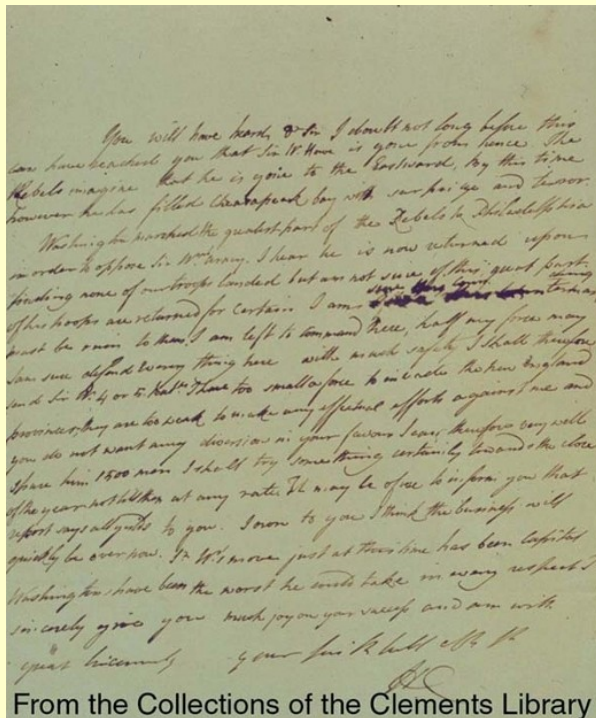 You will have heard, Dr Sir I doubt not long before this
can have reached you that Sir W. Howe is gone from hence. The
Rebels imagine that he is gone to the Eastward, by this time
however he has filled Chesapeak bay with surprize and terror.
Washington marched the greatest part of the Rebels to Philadelphia
in order to oppose Sir Wms. army. I hear he is now returned upon
finding none of our troops landed but am not sure of this, great part
of his troops are returned for certain I am sure this
must be ruin to them. I am left to command here, half my force may
I am sure defend every thing here with as much safety I shall therefore
send Sir W. 4 or 5 Batns. I have too small a force to invade the New England
provinces, they are too weak to make any effectual efforts against me and
you do not want any diversion in your favour I can, therefore very well
spare him 1500 men I shall try something certainly towards the close
of the year not till then at any rate. It may be of use to inform you that
report says all yields to you. I own to you I think the business will
quickly be over now. Sr. W's move just at this time has been Capital
Washingtons have been the worst he could take in every respect I
sincerely give you much joy on your success and am with
great Sincerity your
HC
From the Collections of the Clements Library